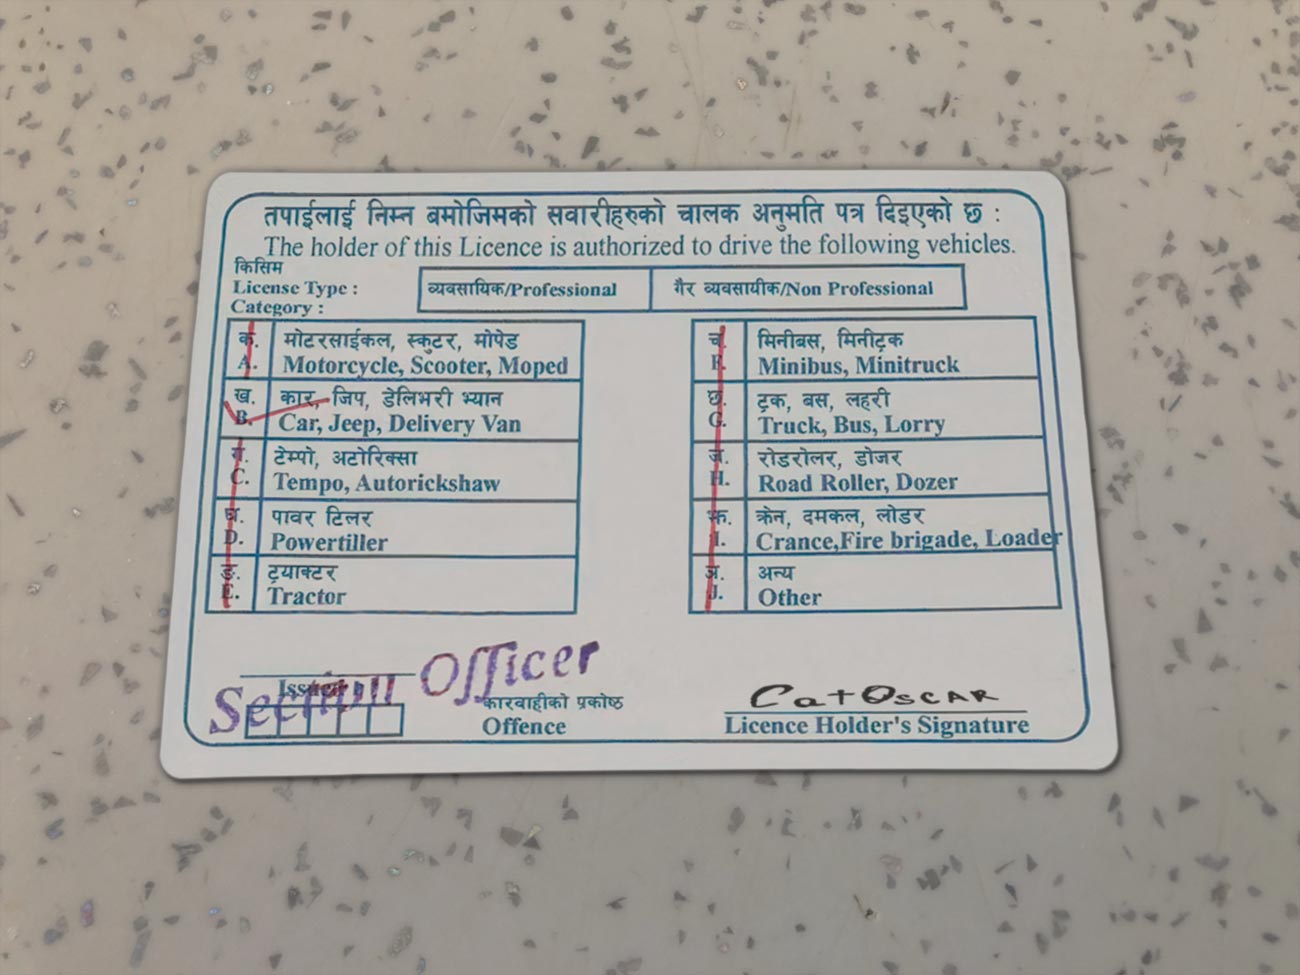 तपाईलाई निम्न बमोजिमको सवारीहरुको चालक अनुमति पत्र दिइएको छ :
The holder of this Licence is authorized to drive the following vehicles.
किसिम
License Type :
व्यवसायिक/Professional
गैर व्यवसायीक/Non Professional
Category :
क. मोटरसाईकल, स्कुटर, मोपेड
A. Motorcycle, Scooter, Moped
ख. कार, जिप, डेलिभरी भ्यान
B. Car, Jeep, Delivery Van
ग. टेम्पो, अटोरिक्सा
C. Tempo, Autorickshaw
घ. पावर टिलर
D. Powertiller
ङ. ट्रयाक्टर
E. Tractor
च. मिनीबस, मिनीट्रक
F. Minibus, Minitruck
छ. ट्रक, बस, लहरी
G. Truck, Bus, Lorry
ज. रोडरोलर, डोजर
H. Road Roller, Dozer
झ. क्रेन, दमकल, लोडर
I. Crance,Fire brigade, Loader
ञ. अन्य
J. Other
Section Officer
कारवाहीको प्रकोष्ठ
Offence
Cat OSCAR
Licence Holder's Signature